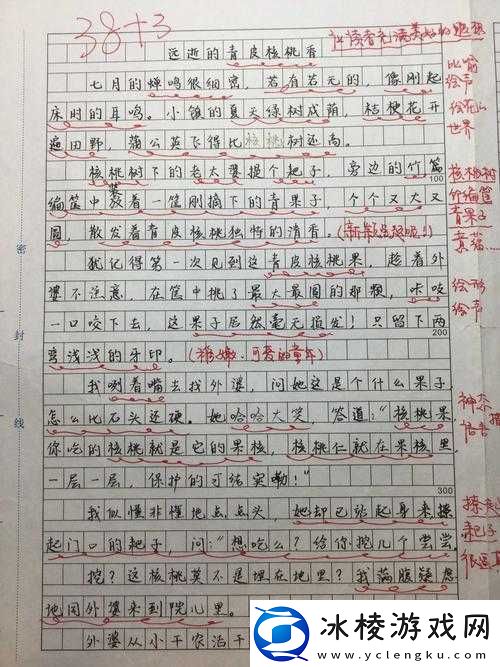 38+3
让读者充满美好的遐想
远逝的青皮核桃香
七月的蝉鸣很细密，若有若无的，像刚起
床时的耳鸣。小镇的夏天绿树成荫，桔梗花开
遍田野，蒲公英飞得比核桃树还高。
核桃树下的老太婆摸个耙子，旁边的竹篇
编筐中装着一筐刚摘下的青果子，个个又大又
圆，散发着青皮核桃独特的清香。
犹记得第一次见到这青皮核桃果，趁着外
婆不注意，在筐中挑了最大最圆的那颗，咔咬
一口咬下去，这果子居然毫无损发！只留下两
弯浅浅的牙印。（稚嫩、可爱的童年）
我咧着嘴去找外婆，问她这是个什么果子，
怎么比石头还硬。她哈哈大笑，答道：“核桃果，
你吃的核桃就是它的果核，核桃仁就在果核里，
一层一层，保护的可结实嘞！”
我似懂非懂地点点头，她却已站起身来操
起门口的耙子，问：“想吃么？给你挖几个尝尝。
挖？这核桃莫不是埋在地里？我满腹疑虑
地同外婆来到院儿里。
外婆从小干农活干
比喻
绘声
世界
核桃树
竹编筐
青果子
绘形
绘声
神态
耙子
100
200
300
密
封
线
冰棱游戏网
www.yclengku.com